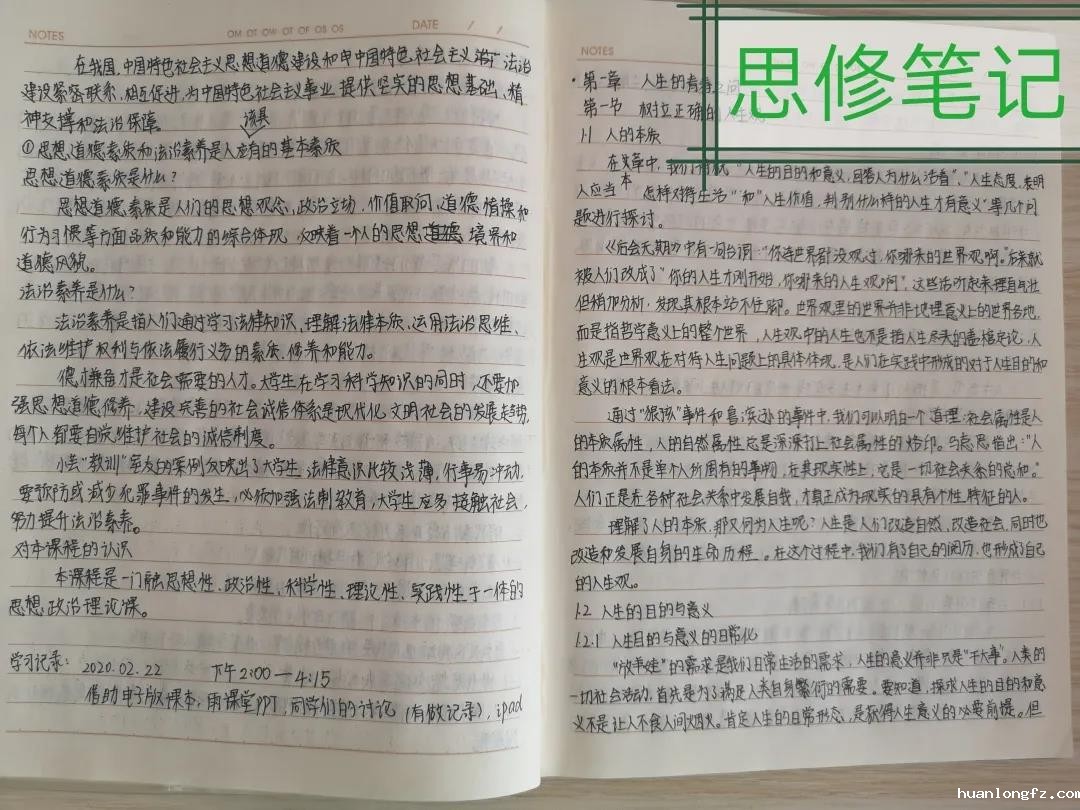 思修笔记
NOTES
OM OT OW OT OF OS OS
DATE / /
在我国,中国特色社会主义思想道德建设和中国特色社会主义法治
建设紧密联系、相互促进,为中国特色社会主义事业提供坚实的思想基础、精
神支撑和法治保障。
①思想道德素质和法治素养是人应有的基本素质
思想道德素质是什么?
思想道德素质是人们的思想观念、政治立场、价值取向、道德情操和
行为习惯等方面品质和能力的综合体现,反映着一个人的思想境界和
道德风貌。
法治素养是什么?
法治素养是指人们通过学习法律知识、理解法律本质、运用法治思维、
依法维护权利与依法履行义务的素质、修养和能力。
德才兼备才是社会需要的人才。大学生在学习科学知识的同时,还要加
强思想道德修养,建设完善的社会诚信体系是现代化文明社会的发展走势,
每个人都要自觉维护社会的诚信制度。
小芸“教训”室友的案例反映出了大学生法律意识比较浅薄,行事易冲动,
要预防或减少犯罪事件的发生,必须加强法制教育,大学生应多接触社会,
努力提升法治素养。
对本课程的认识
本课程是一门融思想性、政治性、科学性、理论性、实践性于一体的
思想政治理论课。
学习记录: 2020.02.22 下午2:00—4:15
借助电子版课本,雨课堂PPT,同学们的讨论(有做记录),ipad
NOTES
·第一章 人生的青春之问
第一节 树立正确的人生观
1.1 人的本质
在文章中,我们将就“人生的目的和意义,回答人为什么活着”、“人生态度,表明
人应当怎样对待生活”“和”人生价值,判别什么样的人生才有意义”等几个问
题进行探讨。
《后会无期》中有一句台词:“你连世界都没观过,你哪来的世界观啊。”后来就
被人们改成了“你的人生才刚开始,你哪来的人生观啊”。这些话听起来理直气壮
但稍加分析,发现其根本站不住脚。世界观里的世界并非地理意义上的世界各地,
而是指哲学意义上的整个世界,人生观中的人生也不是指人生尽头的盖棺定论,人
生观是世界观在对待人生问题上的具体体现,是人们在实践中形成的对于人生目的和
意义的根本看法。
通过“狼孩”事件和鲁滨逊的事件中,我们可以明白一个道理:社会属性是人
的本质属性,人的自然属性也是深深打上社会属性的烙印。马克思指出:“人
的本质并不是单个人所固有的事物,在其现实性上,它是一切社会关系的总和。”
人们正是在各种社会关系中发展自我,才真正成为现实的具有个性特征的人。
理解了人的本质,那又何为人生呢?人生是人们改造自然、改造社会,同时也
改造和发展自身的生命历程。在这个过程中,我们有了自己的阅历,也形成了自己
的人生观。
1.2 人生的目的与意义
1.2.1 人生目的与意义的日常化
“放羊娃”的需求是我们日常生活的需求,人生的意义并非只是“干大事”。人类的
一切社会活动,首先是为了满足人类自身繁衍的需要。要知道,探求人生的目的和意
义不是让人不食人间烟火。肯定人生的日常形态,是获得人生意义的必要前提。但
huanlongfz.com